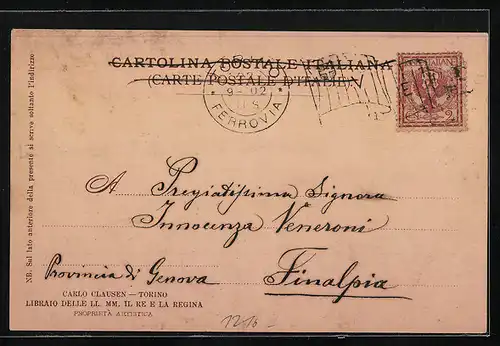 CARTOLINA POSTALE ITALIANA
(CARTE POSTALE D'ITALIE)
TORINO
9-02
FERROVIA
2
NB. Sul lato anteriore della presente si scrive soltanto l'indirizzo.
A Pregiatissima Signora
Innocenza Veneroni
Finalpia
Provincia di Genova
CARLO CLAUSEN — TORINO
LIBRAIO DELLE LL. MM. IL RE E LA REGINA
PROPRIETÀ ARTISTICA